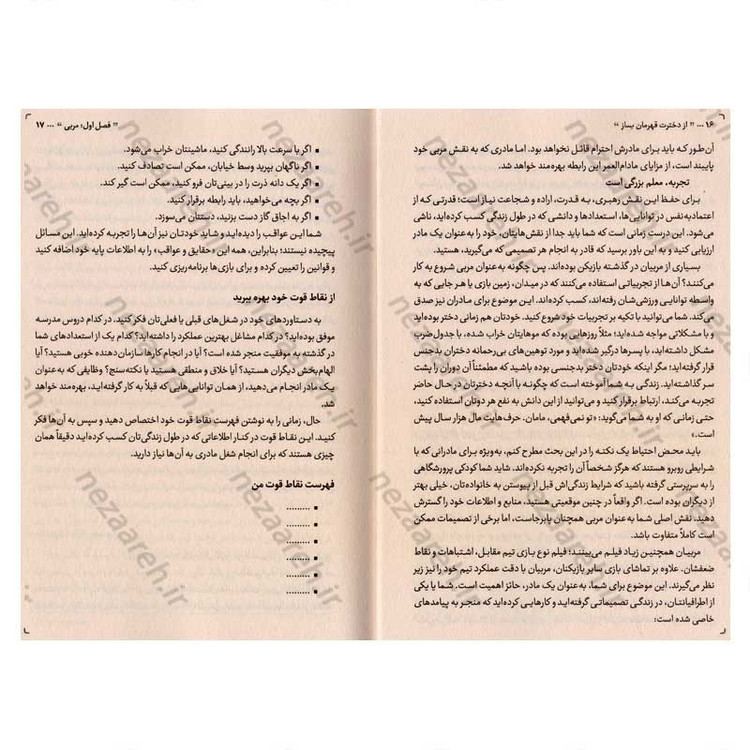 ۱۶ ... " از دخترت قهرمان بساز "
آن‌طور که باید برای مادرش احترام قائل نخواهد بود. اما مادری که به نقش مربی خود
پایبند است، از مزایای مادام‌العمر این رابطه بهره‌مند خواهد شد.
تجربه، معلم بزرگی است
برای حفظ این نقش رهبری، به قدرت، اراده و شجاعت نیاز است؛ قدرتی که از
اعتمادبه‌نفس در توانایی‌ها، استعدادها و دانشی که در طول زندگی کسب کرده‌اید، ناشی
می‌شود. این درست زمانی است که شما باید جدا از نقش‌هایتان، خود را به‌عنوان یک مادر
ارزیابی کنید و به این باور برسید که قادر به انجام هر تصمیمی که می‌گیرید، هستید.
بسیاری از مربیان در گذشته بازیکن بوده‌اند. پس چگونه به‌عنوان مربی شروع به کار
می‌کنند؟ آن‌ها از تجربیاتی استفاده می‌کنند که در میدان، زمین بازی یا هر جایی که به
واسطه توانایی ورزشی‌شان رفته‌اند، کسب کرده‌اند. این موضوع برای مادران نیز صدق
می‌کند. شما می‌توانید با تکیه بر تجربیات خود شروع کنید. خودتان هم زمانی دختر بوده‌اید
و با مشکلاتی مواجه شده‌اید؛ مثلاً روزهایی بوده که موهایتان خراب شده، با جدول‌ضرب
مشکل داشته‌اید، با پسرها درگیر شده‌اید و مورد توهین‌های بی‌رحمانه دختران بدجنس
قرار گرفته‌اید؛ مگر اینکه خودتان دختر بدجنسی بوده باشید که مطمئناً آن دوران را پشت
سر گذاشته‌اید. زندگی به شما آموخته است که چگونه با آنچه دخترتان در حال حاضر
تجربه می‌کند، ارتباط برقرار کنید و می‌توانید از این دانش به نفع هر دوتان استفاده کنید،
حتی زمانی که او به شما می‌گوید: «تو نمی‌فهمی، مامان. حرف‌هایت مال هزار سال پیش
است.»
باید محض احتیاط یک نکته را در این بحث مطرح کنم، به‌ویژه برای مادرانی که با
شرایطی روبرو هستند که هرگز شخصاً آن را تجربه نکرده‌اند. شاید شما کودکی پرورشگاهی
را به سرپرستی گرفته باشید که شرایط زندگی‌اش قبل از پیوستن به خانواده‌تان، خیلی بهتر
از دیگران بوده است. اگر واقعاً در چنین موقعیتی هستید، منابع و اطلاعات خود را گسترش
دهید. نقش اصلی شما به‌عنوان مربی همچنان پابرجاست، اما برخی از تصمیمات ممکن
است کاملاً متفاوت باشد.
مربیان همچنین زیاد فیلم می‌بینند؛ فیلم نوع بازی تیم مقابل، اشتباهات و نقاط
ضعفشان. علاوه بر تماشای بازی سایر بازیکنان، مربیان با دقت عملکرد تیم خود را نیز زیر
نظر می‌گیرند. این موضوع برای شما، به‌عنوان یک مادر، حائز اهمیت است. شما یا یکی
از اطرافیانتان، در زندگی تصمیماتی گرفته‌اید و کارهایی کرده‌اید که منجر به پیامدهای
خاصی شده است:
" فصل اول: مربی " ... ۱۷
▪ اگر با سرعت بالا رانندگی کنید، ماشینتان خراب می‌شود.
▪ اگر ناگهان بپرید وسط خیابان، ممکن است تصادف کنید.
▪ اگر یک دانه ذرت را در بینی‌تان فرو کنید، ممکن است گیر کند.
▪ اگر بچه می‌خواهید، باید رابطه برقرار کنید.
▪ اگر به اجاق گاز دست بزنید، دستتان می‌سوزد.
شما این عواقب را دیده‌اید و شاید خودتان نیز آن‌ها را تجربه کرده‌اید. این مسائل
پیچیده نیستند؛ بنابراین، همه این «حقایق و عواقب» را به اطلاعات پایه خود اضافه کنید
و قوانین را تعیین کرده و برای بازی‌ها برنامه‌ریزی کنید.
از نقاط قوت خود بهره ببرید
به دستاوردهای خود در شغل‌های قبلی یا فعلی‌تان فکر کنید. در کدام دروس مدرسه
موفق بوده‌اید؟ در کدام مشاغل بهترین عملکرد را داشته‌اید؟ کدام یک از استعدادهای شما
در گذشته به موفقیت منجر شده است؟ آیا در انجام کارها سازمان‌دهنده خوبی هستید؟ آیا
الهام‌بخش دیگران هستید؟ آیا خلاق و منطقی هستید یا نکته‌سنج؟ وظایفی که به‌عنوان
یک مادر انجام می‌دهید، از همان توانایی‌هایی که قبلاً به کار گرفته‌اید، بهره‌مند خواهد
شد.
حال، زمانی را به نوشتن فهرست نقاط قوت خود اختصاص دهید و سپس به آن‌ها فکر
کنید. این نقاط قوت در کنار اطلاعاتی که در طول زندگی‌تان کسب کرده‌اید دقیقاً همان
چیزی هستند که برای انجام شغل مادری به آن‌ها نیاز دارید.
فهرست نقاط قوت من
▪ .........
▪ .........
▪ .........
▪ .........
▪ .........
▪ .........
nezaareh.ir